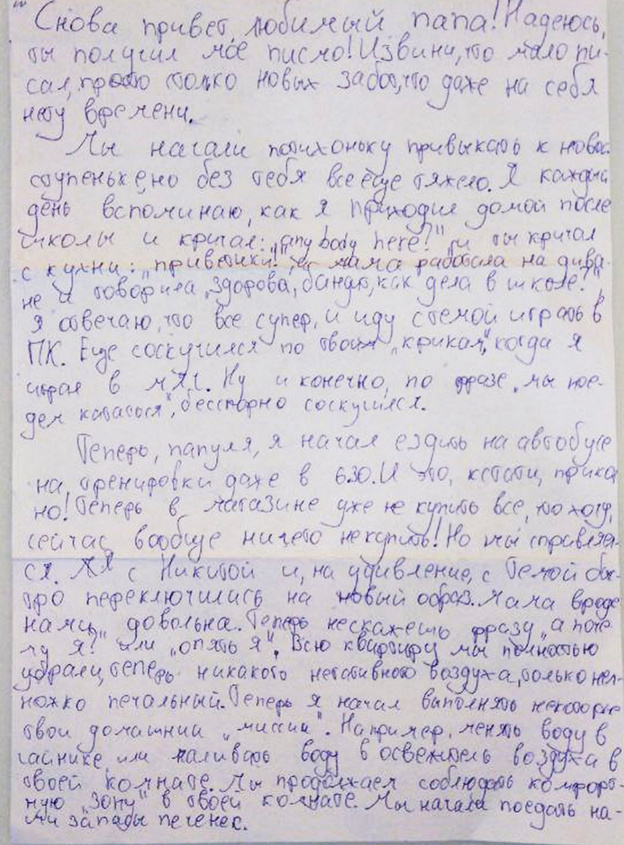 Снова привет, любимый папа! Надеюсь,
ты получил моё писмо! Извини, что мало пи-
сал, просто столько новых забот, что даже на себя
нету времени.
Мы начали потихоньку привыкать к новой
ступеньке, но без тебя все еще тяжело. Я каждый
день вспоминаю, как я приходил домой после
школы и кричал: „Anybody here?" и ты кричал
с кухни: „приветики!", а мама работала на дива-
не и говорила „здорова, бандит, как дела в школе?"
Я отвечаю, что все супер, и иду с темой играть в
ПК. Еще соскучился по твоим „крикам", когда я
играл в мяч. Ну и конечно, по фразе „мы пое-
дем кататься", бесспорно соскучился.
Теперь, папуля, я начал ездить на автобусе
на тренировки даже в 6:30. И это, кстати, прика
но! Теперь в магазине уже не купить все, что хочу,
сейчас вообще ничего не купить! Но мы справляем-
ся. Мы с Никитой и, на удивление, с Темой быс-
тро переключились на новый образ. Мама вроде
нами довольна. Теперь нескажешь фразу „а поче-
му я?" или „опять я". Всю квартиру мы полностью
убрали, теперь никакого негативного воздуха, только нем-
ножко печальный. Теперь я начал выполнять некоторые
твои домашнии „миссии". Например, менять воду в
чайнике, или наливать воду в освежитель воздуха в
твоей комнате. Мы продолжаем соблюдать комфорт-
ную „зону" в твоей комнате. Мы начали поедать на-
ши запасы печенек.